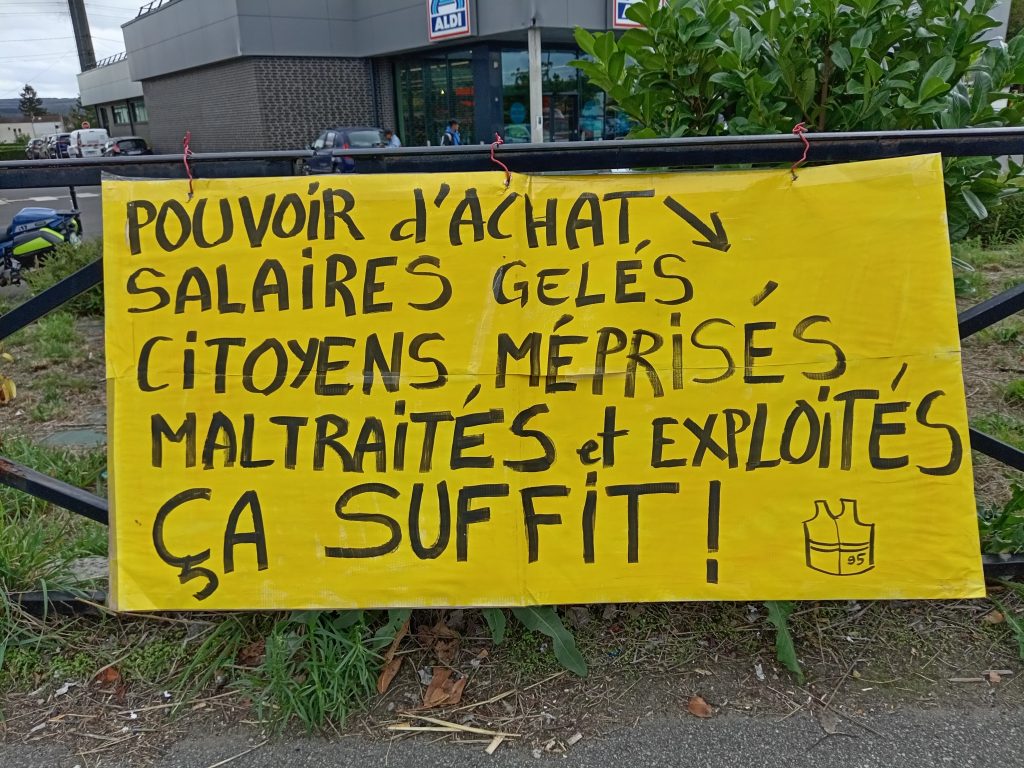 ALDI
POUVOIR d'ACHAT ↘
SALAIRES GELÉS
CITOYENS MÉPRISÉS
MALTRAITÉS et EXPLOITÉS
ÇA SUFFIT !
95